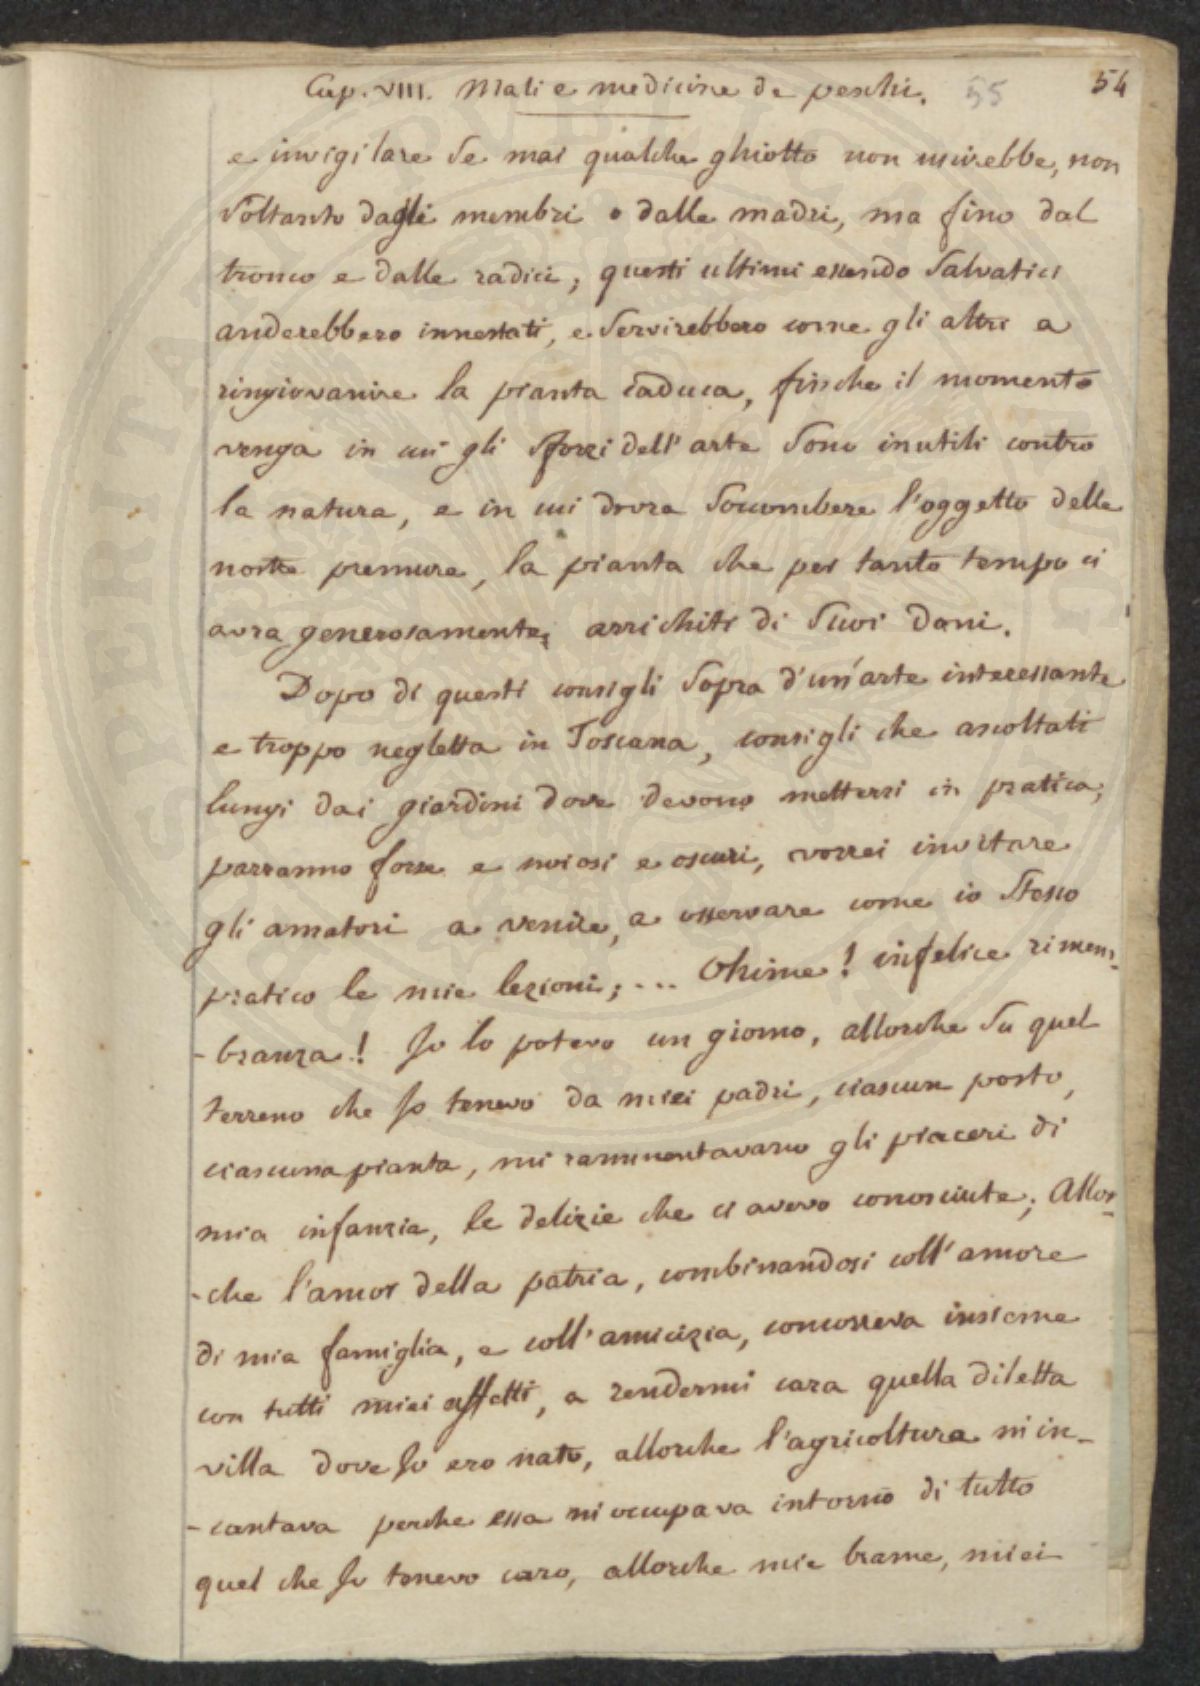 Cap. VIII. Mali e medicine de peschi. 55 54
e invigilare se mai qualche ghiotto non uscirebbe, non
soltanto dagli membri o dalle madri, ma fino dal
tronco e dalle radici; questi ultimi essendo salvatici
anderebbero innestati, e servirebbero come gli altri a
ringiovanire la pianta caduca, finche il momento
venga in cui gli sforzi dell'arte sono inutili contro
la natura, e in cui dovra soccombere l'oggetto delle
nostre premure, la pianta che per tanto tempo ci
avra generosamente, arrichiti di suoi doni.
Dopo di questi consigli sopra d'un'arte interessante
e troppo negletta in Toscana, consigli che ascoltati
lungi dai giardini dove devono mettersi in pratica,
parranno forse e noiosi e oscuri, vorrei invitare
gli amatori a venire, a osservare come io stesso
pratico le mie lezioni; ... Ohime! infelice rimem-
-branza! Io lo potevo un giorno, allorche su quel
terreno che Io tenevo da miei padri, ciascun posto,
ciascuna pianta, mi rammentavano gli piaceri di
mia infanzia, le delizie che ci avevo conosciute; Allor-
-che l'amor della patria, combinandosi coll'amore
di mia famiglia, e coll'amicizia, concorreva insieme
con tutti miei affetti, a rendermi cara quella diletta
villa dove Io ero nato, allorche l'agricoltura m'in-
-cantava perche essa m'occupava intorno di tutto
quel che Io tenevo caro, allorche mie brame, miei